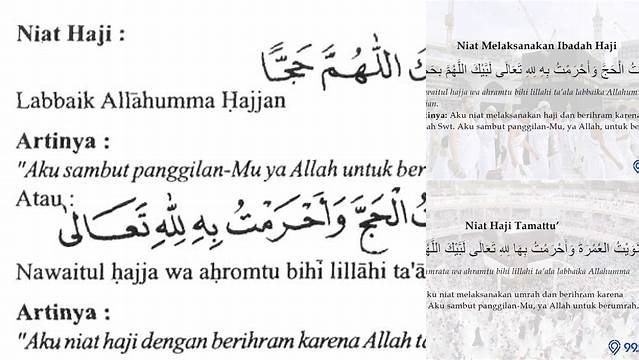 Niat Haji :
كَ اللّٰهُمَّ حَجًّا
Labbaik Allāhumma Ḥajjan
Artinya :
"Aku sambut panggilan-Mu ya Allah untuk ber
Atau :
تُ الْحَجَّ وَأَحْرَمْتُ بِهِ لِلّٰهِ تَعَالَى
Nawaitul ḥajja wa aḥromtu bihī lillāhi ta'ā
Artinya :
"Aku niat haji dengan berihram karena Allah ta
Niat Melaksanakan Ibadah Haji
تُ الْحَجَّ وَأَحْرَمْتُ بِهِ لِلهِ تَعَالَى لَبَّيْكَ اللَّهُمَّ بِحَجّ
waitul hajja wa ahramtu bihi lillahi ta'ala labbaika Allahum
an.
tinya: Aku niat melaksanakan haji dan berihram karena
ah Swt. Aku sambut panggilan-Mu, ya Allah, untuk ber
Niat Haji Tamattu'
نَوَيْتُ العُمْرَةَ وَأَحْرَمْتُ بِهَا لِلهِ تَعَالَى لَبَّيْكَ اللَّهُ
umrata wa ahramtu bihi lillahi ta'ala labbaika Allahumma
ku niat melaksanakan umrah dan berihram karena
Aku sambut panggilan-Mu, ya Allah, untuk berumrah.
99